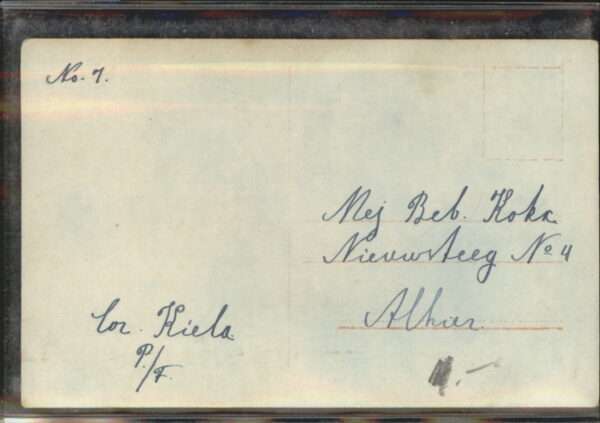 No. 7.
Mej Beb. Kokx
Nieuwsteeg No 4
Alhier.
Cor. Kiela
P./F.